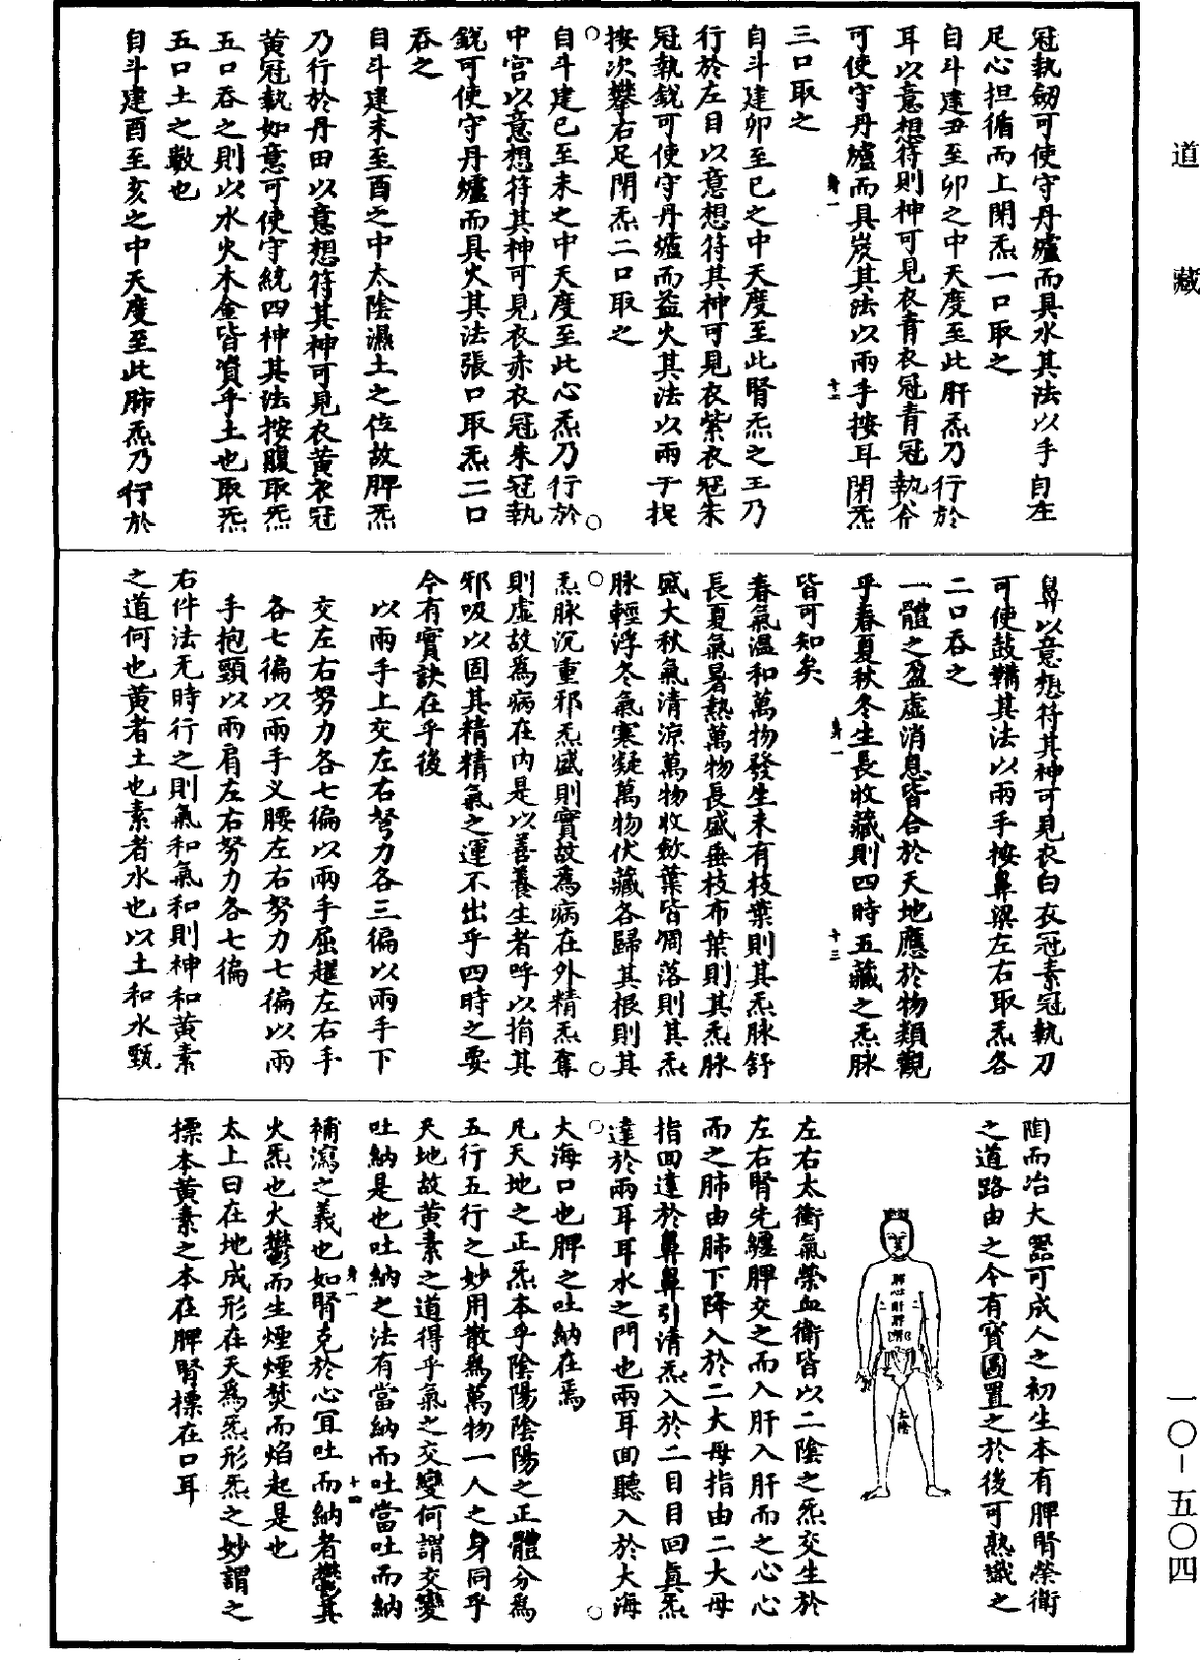 道藏
冠執劒可使守丹爐而具水其法以手自左
足心担循而上閉炁一口取之
自斗建丑至卯之中天度至此肝炁乃行於
耳以意想符則神可見衣青衣冠青冠執斧
可使守丹爐而具炭其法以兩手按耳閉炁
三口取之
自斗建卯至巳之中天度至此腎炁之王乃
行於左目以意想符其神可見衣紫衣冠朱
冠執銳可使守丹爐而益火其法以兩手捉
按次攀右足閉炁二口取之
自斗建巳至未之中天度至此心炁乃行於
中宮以意想符其神可見衣赤衣冠朱冠執
銳可使守丹爐而具火其法張口取炁二口
吞之
自斗建未至酉之中太陰濕土之位故脾炁
乃行於丹田以意想符其神可見衣黃衣冠
黃冠執如意可使守統四神其法按腹取炁
五口吞之則以水火木金皆資乎土也取炁
五口土之數也
自斗建酉至亥之中天度至此肺炁乃行於
鼻以意想符其神可見衣白衣冠素冠執刀
可使鼓鞴其法以兩手按鼻梁左右取炁各
二口吞之
一體之盈虛消息皆合於天地應於物類觀
乎春夏秋冬生長收藏則四時五藏之炁脉
皆可知矣
春氣溫和萬物發生未有枝葉則其炁脉舒
長夏氣暑熱萬物長盛垂枝布葉則其炁脉
盛大秋氣清涼萬物收斂葉皆凋落則其炁
脉輕浮冬氣寒凝萬物伏藏各歸其根則其
炁脉沉重邪炁盛則實故為病在外精炁奪
則虛故為病在内是以善養生者呼以捐其
邪吸以固其精精氣之運不出乎四時之要
今有實訣在乎後
以兩手上交左右努力各三徧以兩手下
交左右努力各七徧以兩手屈趯左右手
各七徧以兩手义腰左右努力七徧以兩
手抱頸以兩肩左右努力各七徧
右件法无時行之則氣和氣和則神和黃素
之道何也黃者土也素者水也以土和水甄
陶而冶大器可成人之初生本有脾腎榮衛
之道路由之今有寶圖置之於後可熟識之
左右太衝氣榮血衛皆以二陰之炁交生於
左右腎先纏脾交之而入肝入肝而之心心
而之肺由肺下降入於二大母指由二大母
指回達於鼻鼻引清炁入於二目目回真炁
達於兩耳耳水之門也兩耳回聽入於大海
大海口也脾之吐納在焉
凡天地之正炁本乎陰陽陰陽之正體分為
五行五行之妙用散為萬物一人之身同乎
天地故黃素之道得乎氣之交變何謂交變
吐納是也吐納之法有當納而吐當吐而納
補瀉之義也如腎克於心宜吐而納者鬱其
火炁也火鬱而生煙煙焚而焰起是也
太上曰在地成形在天為炁形炁之妙謂之
摽本黃素之本在脾腎摽在口耳
一〇－五〇四